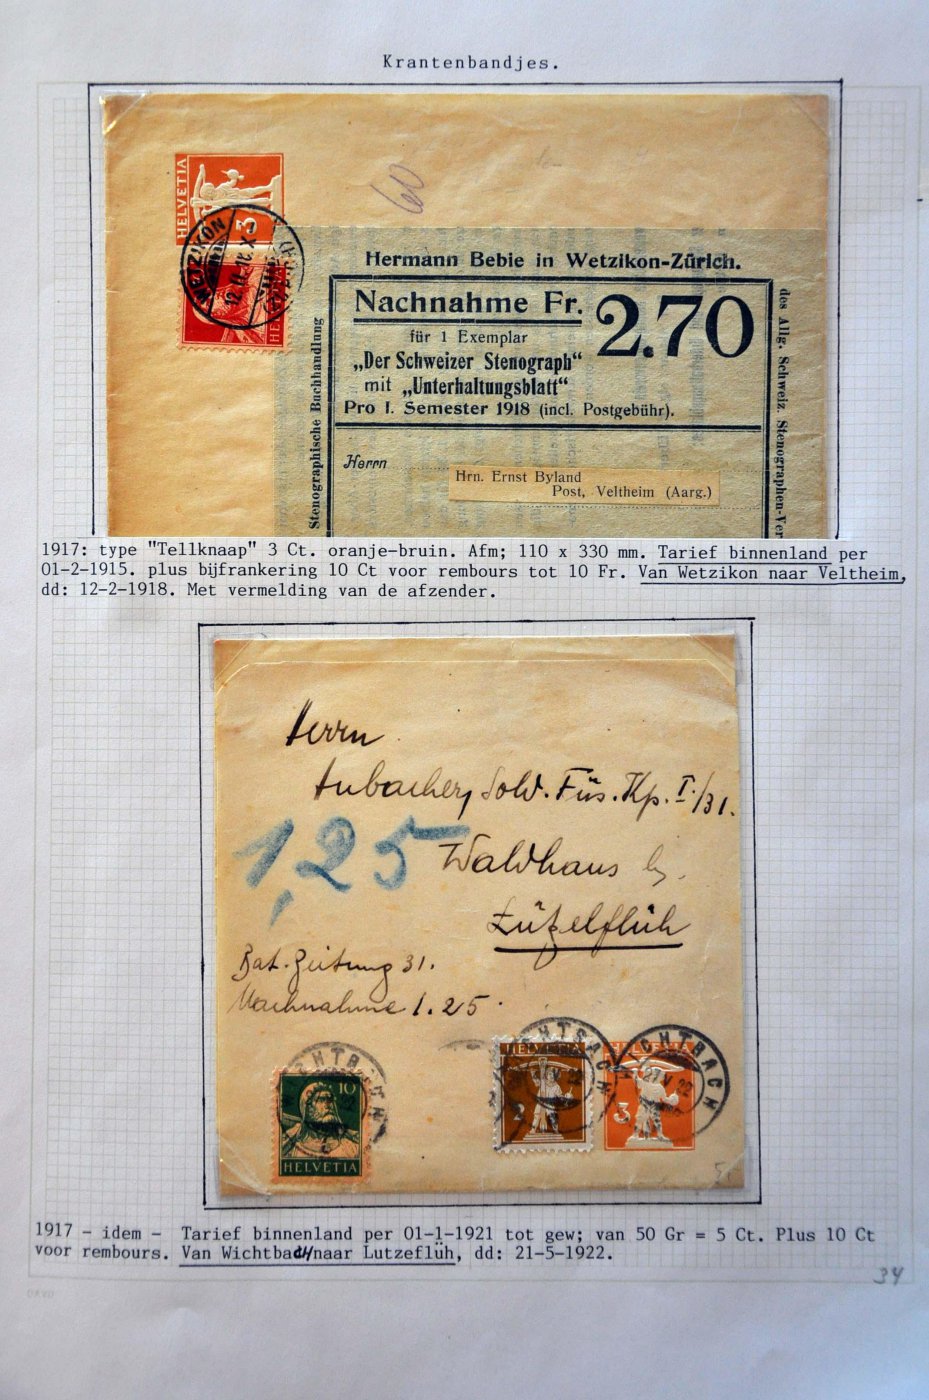 Krantenbandjes.
HELVETIA
3
60
WETZIKON
12.II.18.X
HELVETIA
Hermann Bebie in Wetzikon-Zürich.
Nachnahme Fr. 2.70
für 1 Exemplar
„Der Schweizer Stenograph"
mit „Unterhaltungsblatt"
Pro I. Semester 1918 (incl. Postgebühr).
Stenographische Buchhandlung
des Allg. Schweiz. Stenographen-Ver
Herrn
Hrn. Ernst Byland
Post, Veltheim (Aarg.)
1917: type "Tellknaap" 3 Ct. oranje-bruin. Afm; 110 x 330 mm. Tarief binnenland per
01-2-1915. plus bijfrankering 10 Ct voor rembours tot 10 Fr. Van Wetzikon naar Veltheim,
dd: 12-2-1918. Met vermelding van de afzender.
Herrn
Aubacher, Sold. Füs. Kp. I/31.
1,25
Waldhaus b/.
Lützelflüh
Bat. Zeitung 31.
Nachnahme 1.25.
10
HELVETIA
HELVETIA
2
HELVETIA
3
27.V.22
5
1917 - idem - Tarief binnenland per 01-1-1921 tot gew; van 50 Gr = 5 Ct. Plus 10 Ct
voor rembours. Van Wichtbach naar Lutzeflüh, dd: 21-5-1922.
34